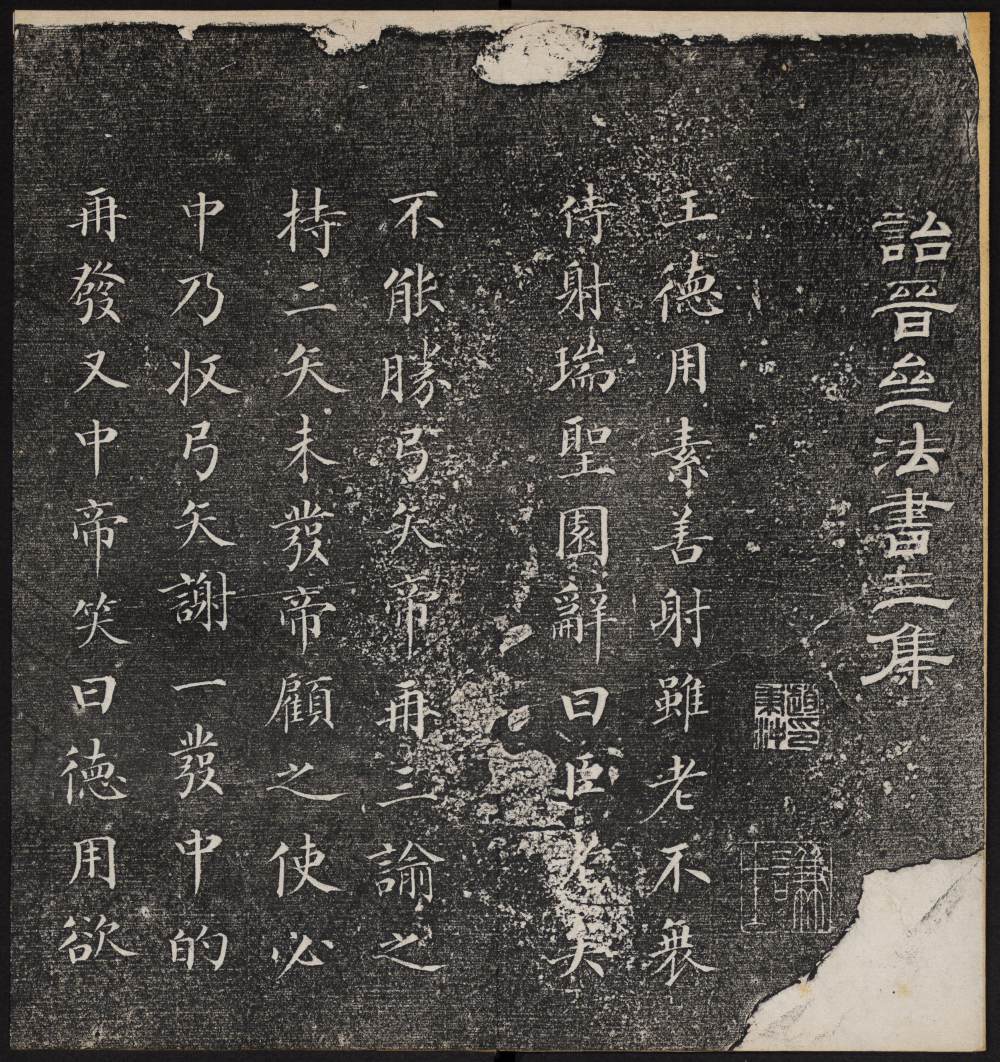 詒晉亝法書集
趙印秉沖
謙士
王德用素善射雖老不衰
侍射瑞聖園辭曰臣老矣
不能勝弓矢帝再三諭之
持二矢未發帝顧之使必
中乃收弓矢謝一發中的
再發又中帝笑曰德用欲